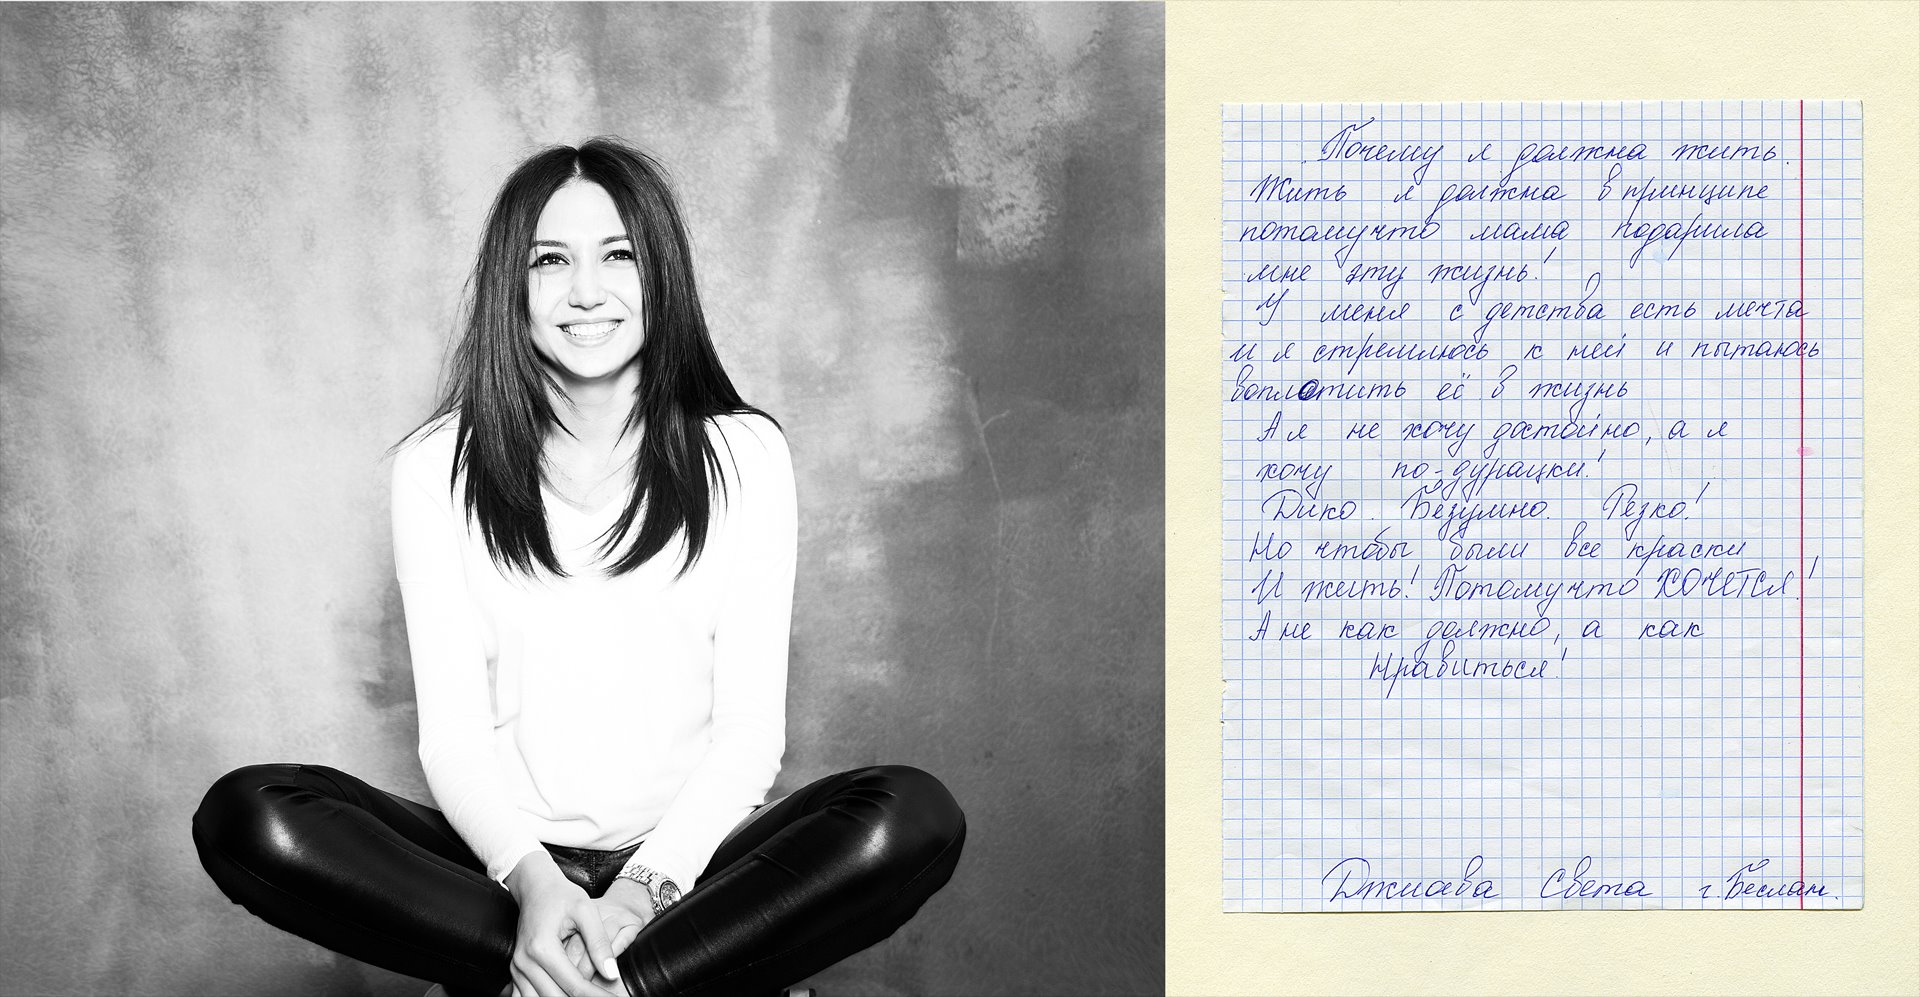 Почему я должна жить.
Жить я должна в принципе
потомучто мама подарила
мне эту жизнь!
У меня с детства есть мечта
и я стремлюсь к ней и пытаюсь
воплотить её в жизнь
А я не хочу достойно, а я
хочу по-дурацки!
Дико. Безумно. Резко!
Но чтобы были все краски
И жить! Потомучто ХОЧЕТСЯ!
А не как должно, а как
Нравиться!
Джиоева Света г. Беслан.